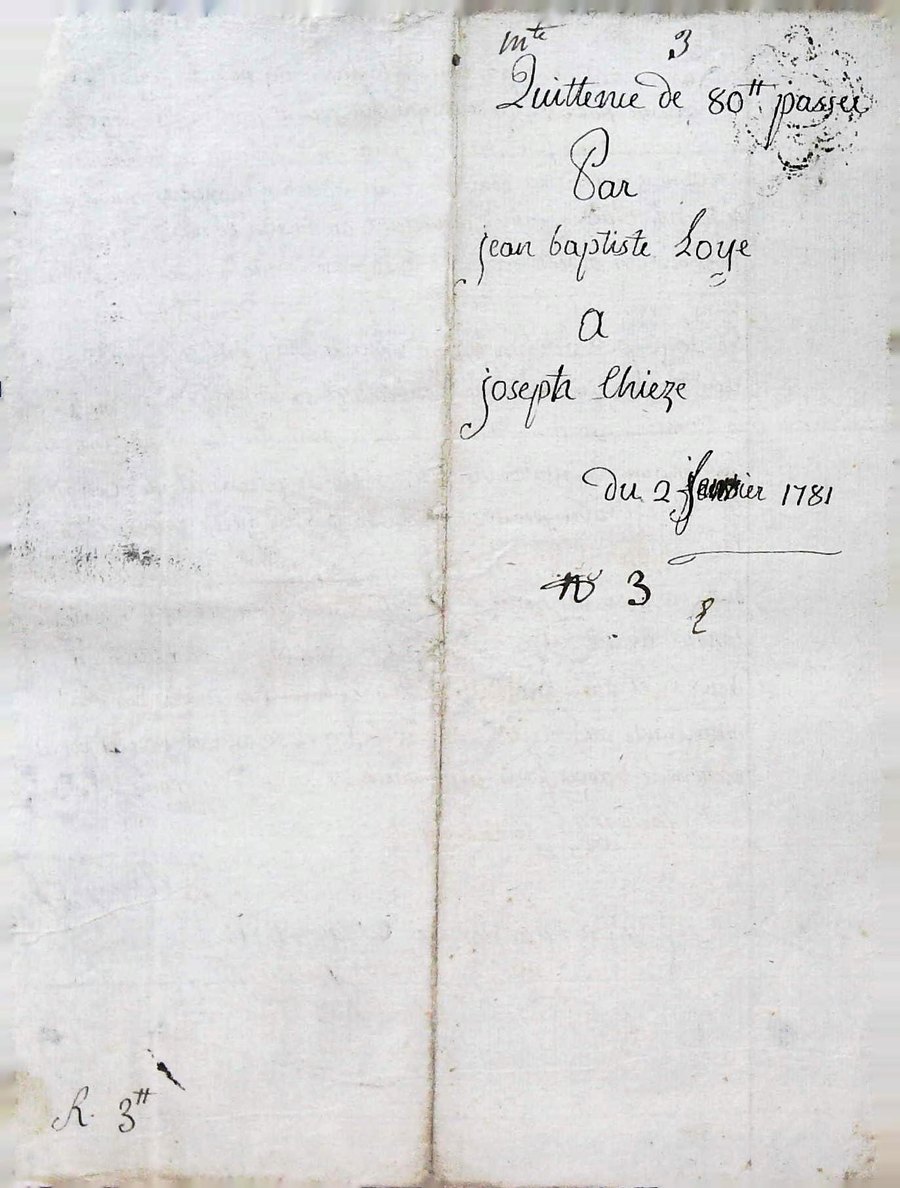 mte 3
Quittence de 80tt passée
Par
jean baptiste Loye
a
joseph Chieze
du 2 janvier 1781
no 3
R. 3tt